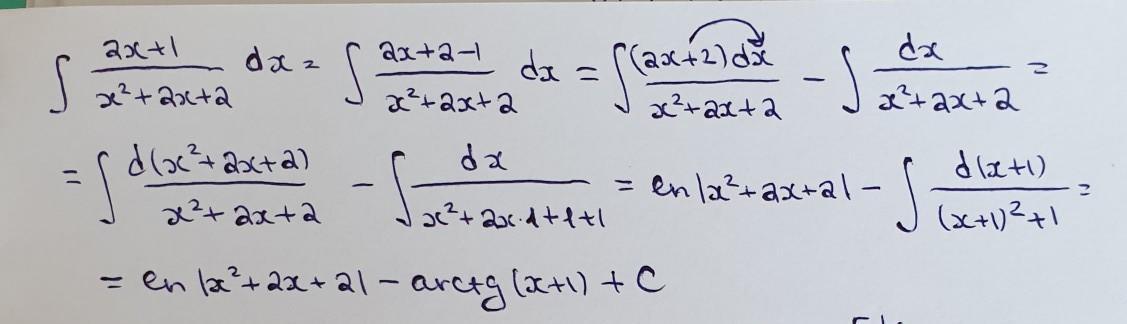 ∫ (2x+1)/(x²+2x+2) dx = ∫ (2x+2-1)/(x²+2x+2) dx = ∫ ((2x+2)dx)/(x²+2x+2) - ∫ dx/(x²+2x+2) =
= ∫ d(x²+2x+2)/(x²+2x+2) - ∫ dx/(x²+2x·1+1+1) = ln|x²+2x+2| - ∫ d(x+1)/((x+1)²+1) =
= ln|x²+2x+2| - arctg(x+1) + C